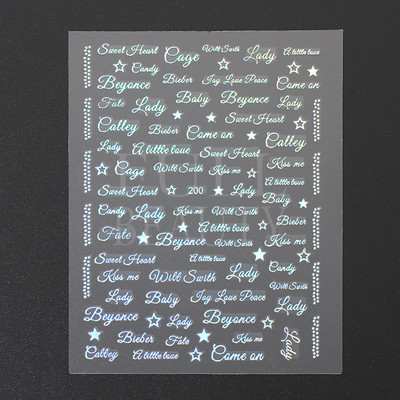 Sweet Heart Cage Will Swith Lady A little love
Candy Bieber Joy Love Peace Come on
Beyonce Baby Beyonce Lady
Fate Lady Sweet Heart
Calley Bieber Come on Calley
Lady A little love Sweet Heart Kiss me
Cage Will Swith Kiss me A little love
Sweet Heart 200 Lady Baby
Candy Lady Kiss me Will Swith Bieber
Fate Beyonce A little love Will Swith Kiss me
Sweet Heart A little love Candy
Kiss me Will Swith Lady Will Swith
Lady Baby Joy Love Peace Lady
Beyonce Lady Beyonce Beyonce
Bieber Lady Kiss me Lady
Calley A little love Come on
FULL
BEAUTY